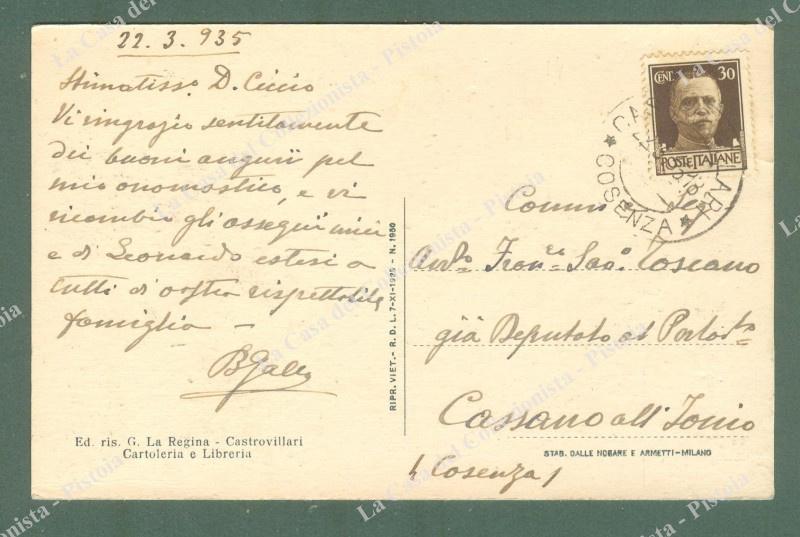 22.3.935
Stimatiss. D. Ciccio
Vi ringrazio sentitamente
dei buoni auguri pel
mio onomastico, e vi
ricambio gli ossequi miei
e di Leonardo estesi a
tutti di vostra rispettabile
famiglia -
B Gallo
Ed. ris. G. La Regina - Castrovillari
Cartoleria e Libreria
RIPR. VIET. - R. D. L. 7-XI-1925 - N. 1950
CENT. 30
POSTE ITALIANE
COSENZA
Comm
Toscano
già Deputato al Parlo
Cassano all'Jonio
(Cosenza)
STAB. DALLE NOGARE E ARMETTI-MILANO
La Casa del Collezionista - Pistoia